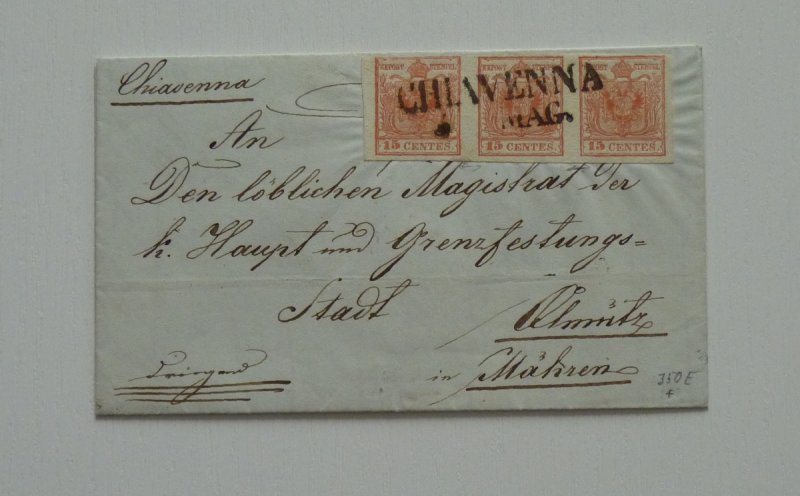 Chiavenna
KKPOST STEMPEL KKPOST STEMPEL KKPOST STEMPEL
CHIAVENNA
MAG.
15 CENTES. 15 CENTES. 15 CENTES.
An
Den löblichen Magistrat der
k. Haupt und Grenzfestungs=
Stadt Olmütz
in Mähren
350 E